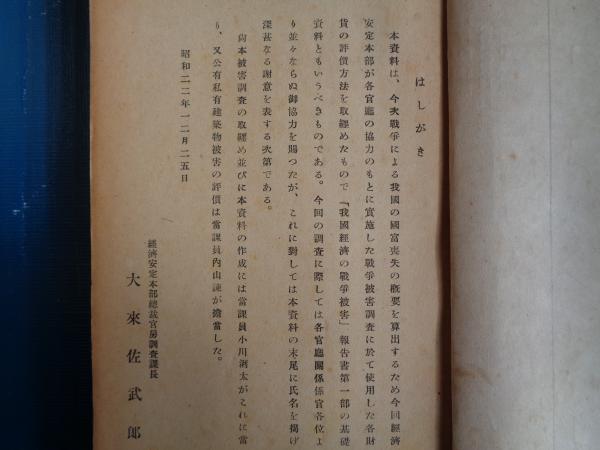 はしがき
本資料は、今次戰爭による我國の國富喪失の概要を算出するため今回經濟
安定本部が各官廳の協力のもとに實施した戰爭被害調査に於て使用した各財
貨の評價方法を取纒めたもので「我國經濟の戰爭被害」報告書第一部の基礎
資料ともいうべきものである。今回の調査に際しては各官廳關係係官各位よ
り並々ならぬ御協力を賜つたが、これに對しては本資料の末尾に氏名を揭げ
深甚なる謝意を表する次第である。
尙本被害調査の取纒め並びに本資料の作成には當課員小川洌太がこれに當
り、又公有私有建築物被害の評價は當課員內山諫が擔當した。
昭和二二年一二月二五日
經濟安定本部總裁官房調査課長
大來佐武郞